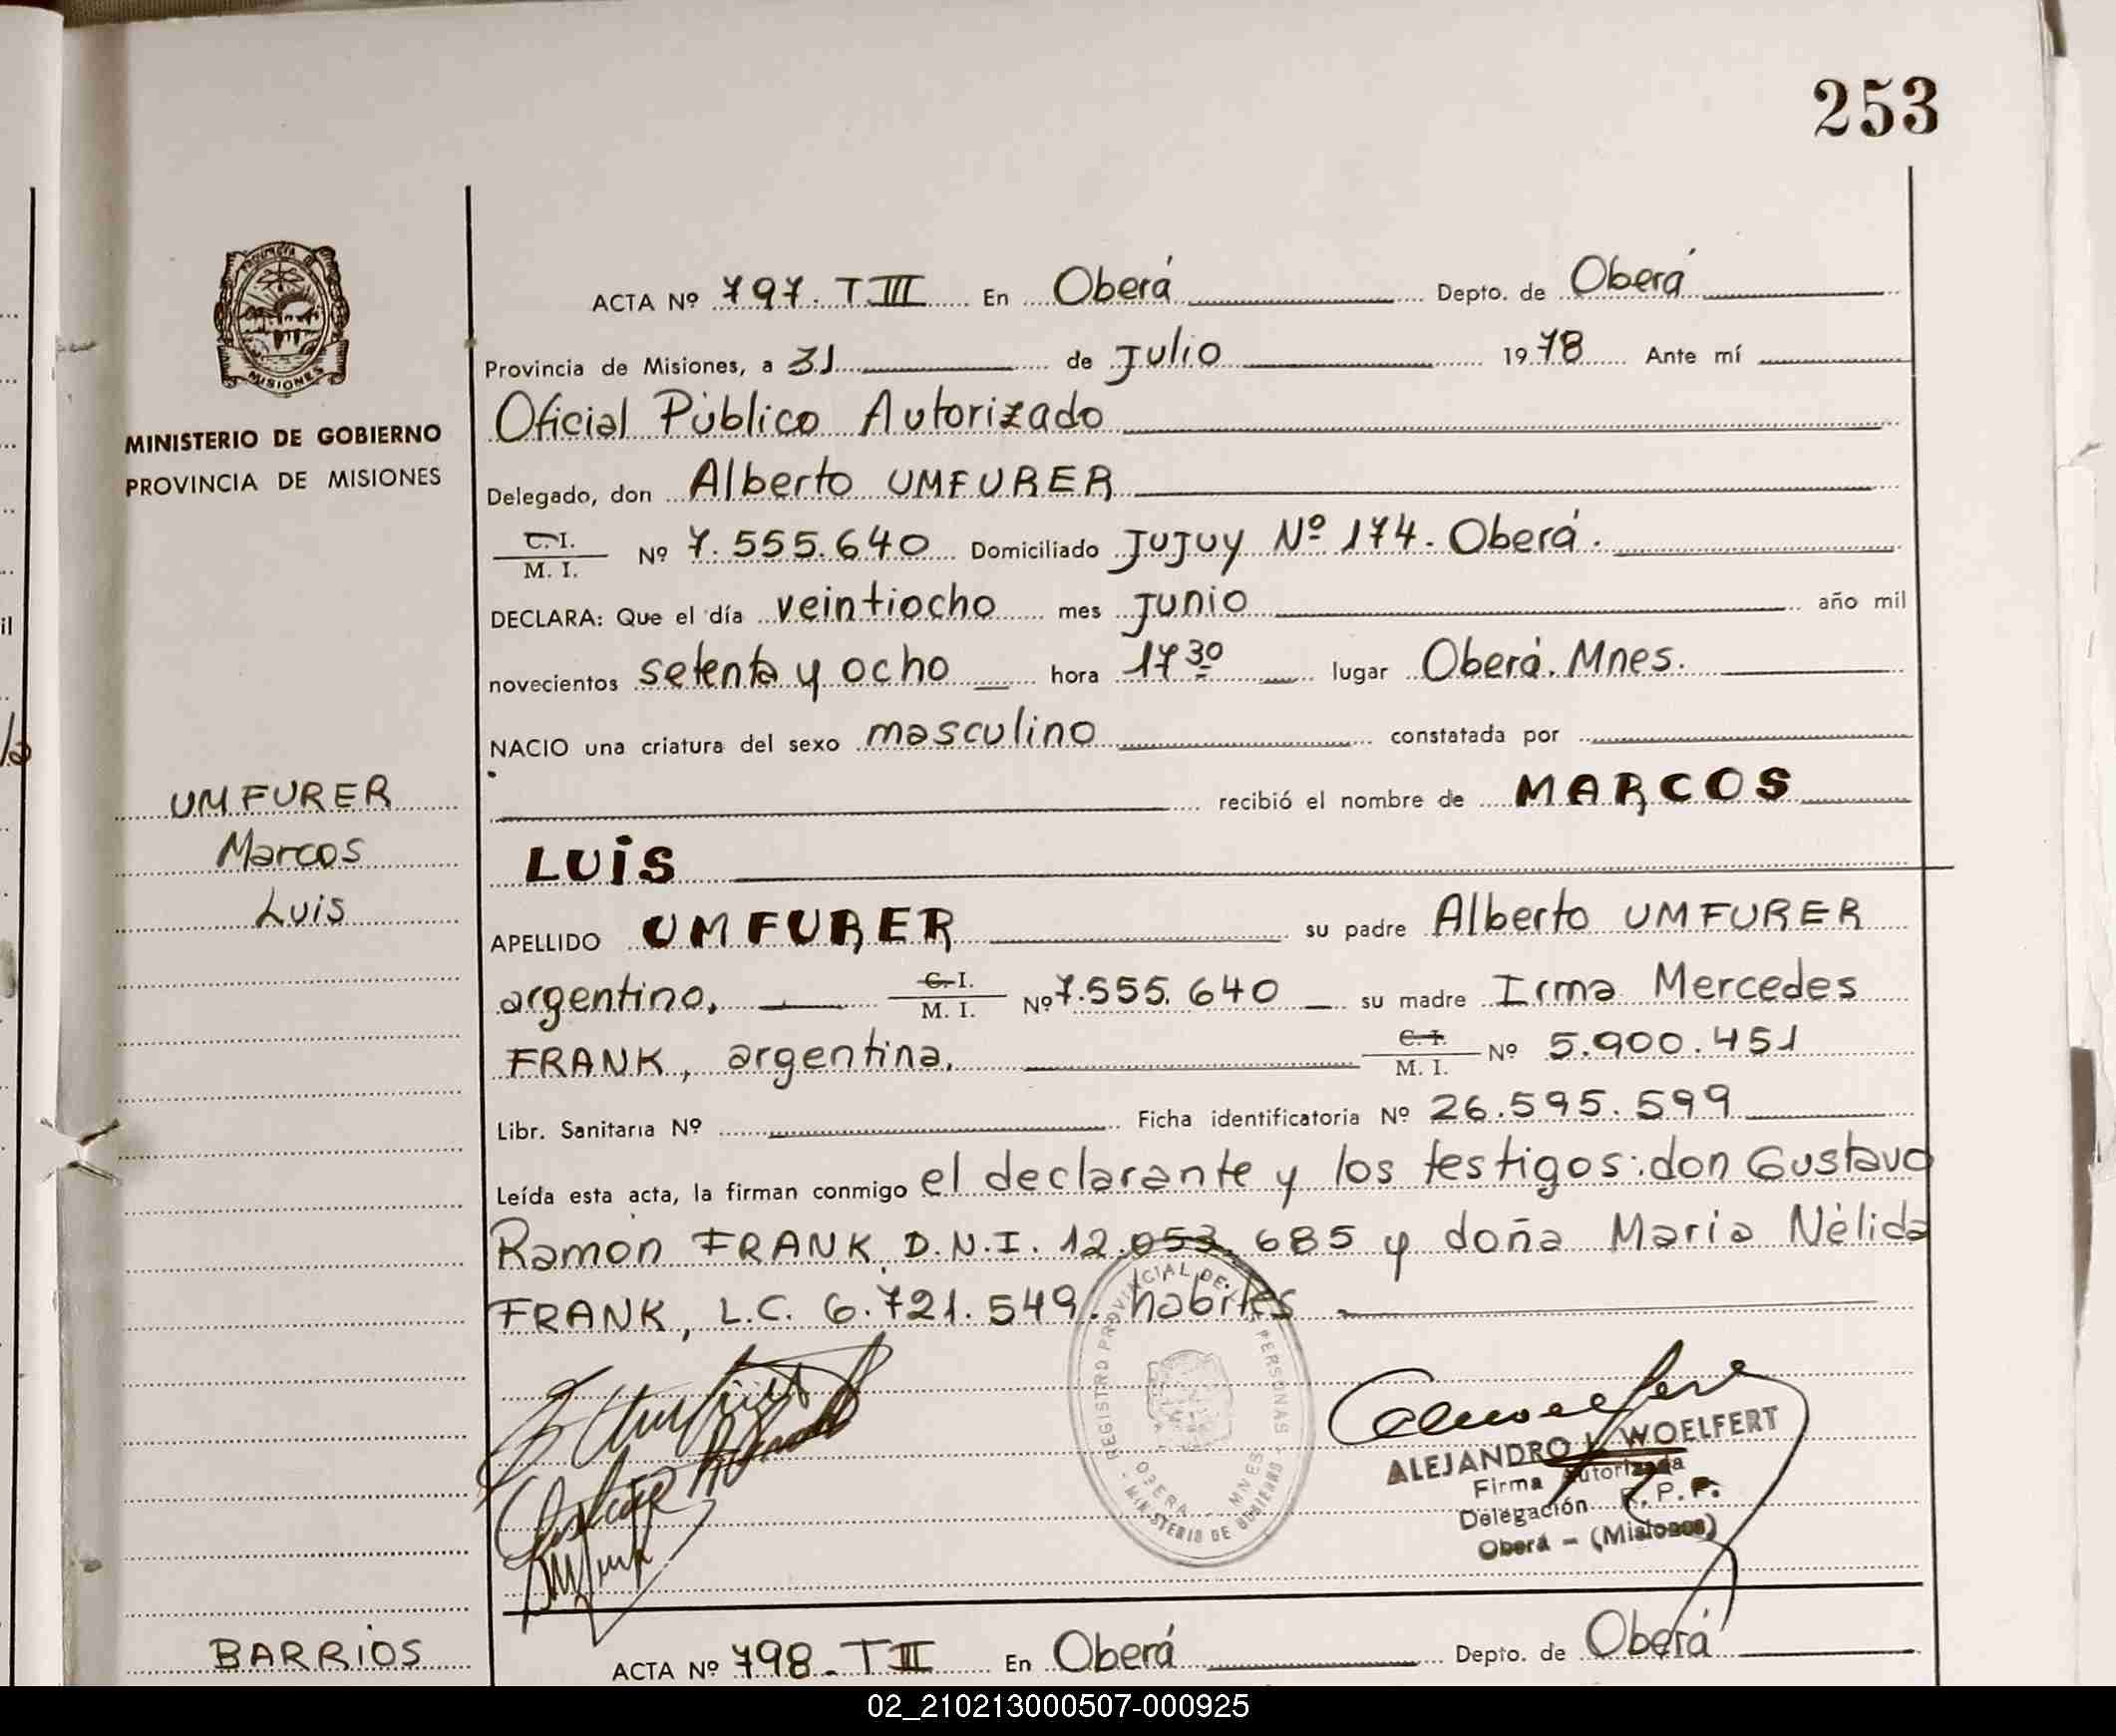 253
PROVINCIA DE
MISIONES
MINISTERIO DE GOBIERNO
PROVINCIA DE MISIONES
UMFURER
Marcos
Luis
ACTA Nº 797. T III En Oberá Depto. de Oberá
Provincia de Misiones, a 31 de Julio 1978 Ante mí
Oficial Público Autorizado
Delegado, don Alberto UMFURER
C.I.
M. I. Nº 7.555.640 Domiciliado Jujuy Nº 174. Oberá.
DECLARA: Que el día veintiocho mes Junio año mil
novecientos setenta y ocho hora 17 30 lugar Oberá. Mnes.
NACIO una criatura del sexo masculino constatada por
recibió el nombre de MARCOS
LUiS
APELLIDO UMFURER su padre Alberto UMFURER
argentino, C.I.
M. I. Nº 7.555.640 su madre Irma Mercedes
FRANK, argentina. C.I.
M. I. Nº 5.900.451
Libr. Sanitaria Nº Ficha identificatoria Nº 26.595.599
Leída esta acta, la firman conmigo el declarante y los testigos: don Gustavo
Ramón FRANK D.N.I. 12.053.685 y doña María Nélida
FRANK, L.C. 6.721.549. habiles
REGISTRO PROVINCIAL DE LAS PERSONAS
OBERA - MNES
MINISTERIO DE GOBIERNO
ALEJANDRO WOELFERT
Firma Autorizada
Delegación R.P.P.
Oberá - (Misiones)
BARRiOS
ACTA Nº 798. T III En Oberá Depto. de Oberá
02_210213000507-000925